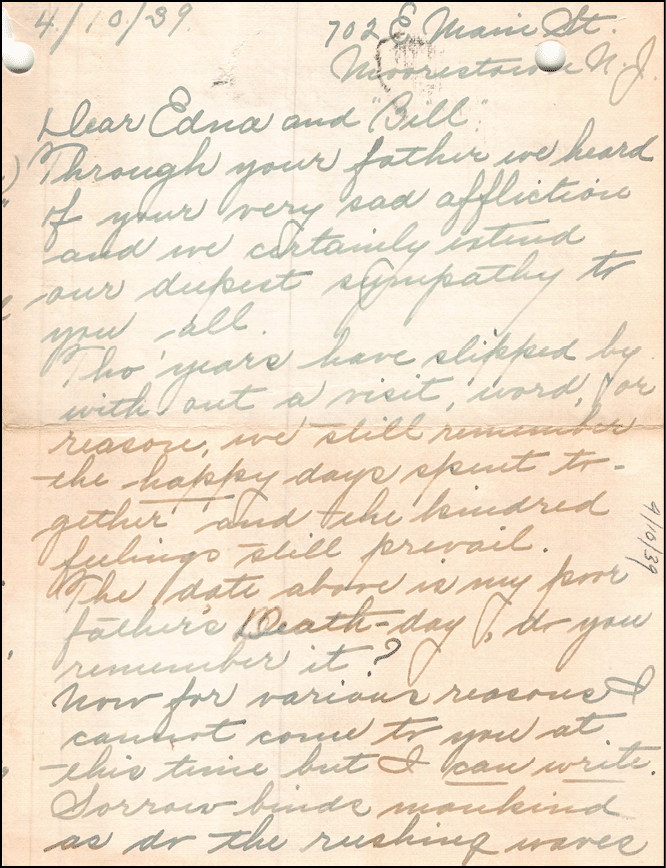 4/10/39.
702 E. Main St.
Moorestown N. J.
Dear Edna and "Bill":
Through your father we heard
of your very sad affliction
and we certainly extend
our deepest sympathy to
you all.
Tho' years have slipped by
with-out a visit, word, or
reason, we still remember
the happy days spent to-
gether and the kindred
feelings still prevail.
The date above is my poor
father's Death-day, do you
remember it?
Now for various reasons I
cannot come to you at
this time but I can write.
Sorrow binds mankind
as do the rushing waves
4/10/39